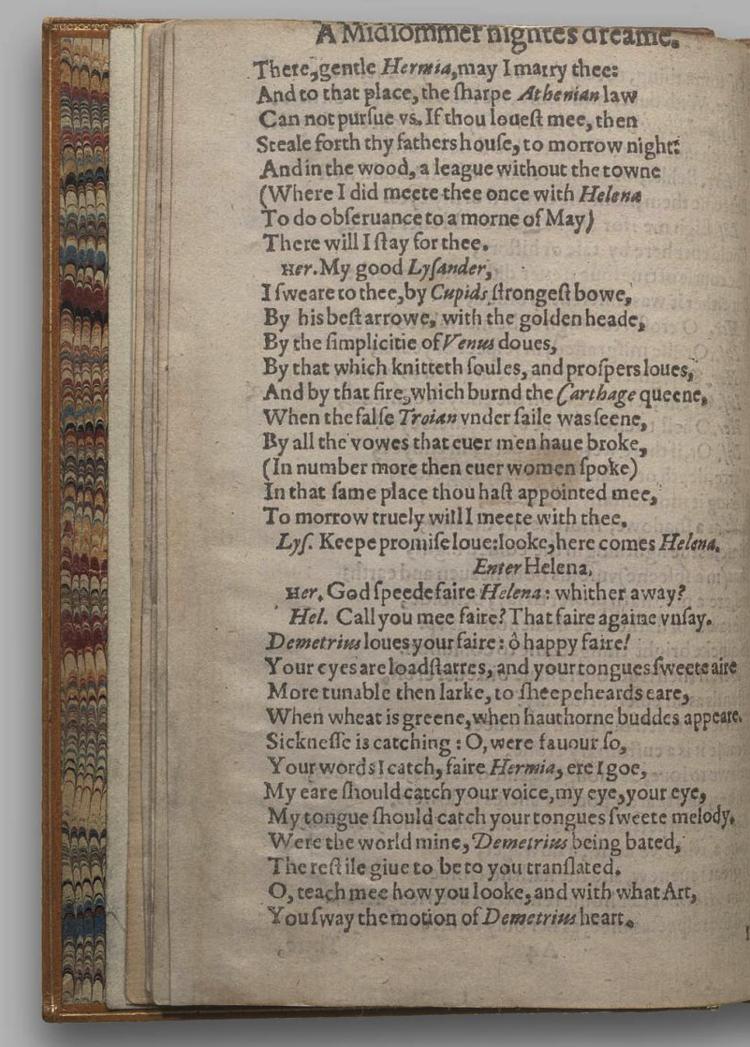 A Midſommer nightes dreame.
There, gentle Hermia, may I marry thee:
And to that place, the ſharpe Athenian law
Can not purſue vs. If thou loueſt mee, then
Steale forth thy fathers houſe, to morrow night:
And in the wood, a league without the towne
(Where I did meete thee once with Helena
To do obſeruance to a morne of May)
There will I ſtay for thee.
Her. My good Lyſander,
I ſweare to thee, by Cupids ſtrongeſt bowe,
By his beſt arrowe, with the golden heade,
By the ſimplicitie of Venus doues,
By that which knitteth ſoules, and proſpers loues,
And by that fire, which burnd the Carthage queene,
When the falſe Troian vnder ſaile was ſeene,
By all the vowes that euer men haue broke,
(In number more then euer women ſpoke)
In that ſame place thou haſt appointed mee,
To morrow truely will I meete with thee.
Lyſ. Keepe promiſe loue: looke, here comes Helena.
Enter Helena,
Her. God ſpeede faire Helena: whither away?
Hel. Call you mee faire? That faire againe vnſay.
Demetrius loues your faire: ô happy faire!
Your eyes are loadſtarres, and your tongues ſweete aire
More tunable then larke, to ſheepeheards eare,
When wheat is greene, when hauthorne buddes appeare.
Sickneſſe is catching: O, were fauour ſo,
Your words I catch, faire Hermia, ere I goe,
My eare ſhould catch your voice, my eye, your eye,
My tongue ſhould catch your tongues ſweete melody.
Were the world mine, Demetrius being bated,
The reſt ile giue to be to you tranſlated.
O, teach mee how you looke, and with what Art,
You ſway the motion of Demetrius heart.